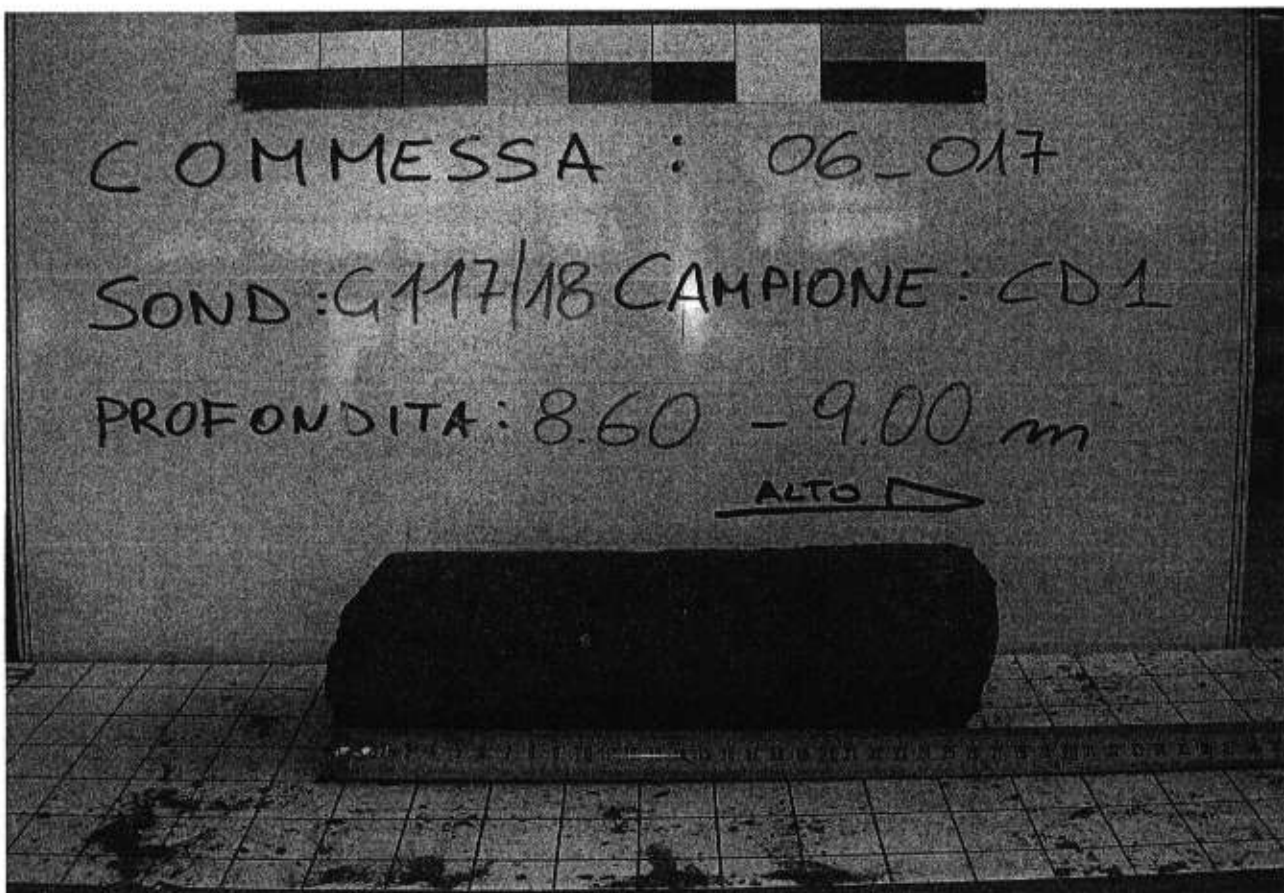 COMMESSA : 06_017
SOND : G117/18 CAMPIONE : CD1
PROFONDITA : 8.60 - 9.00 m
ALTO